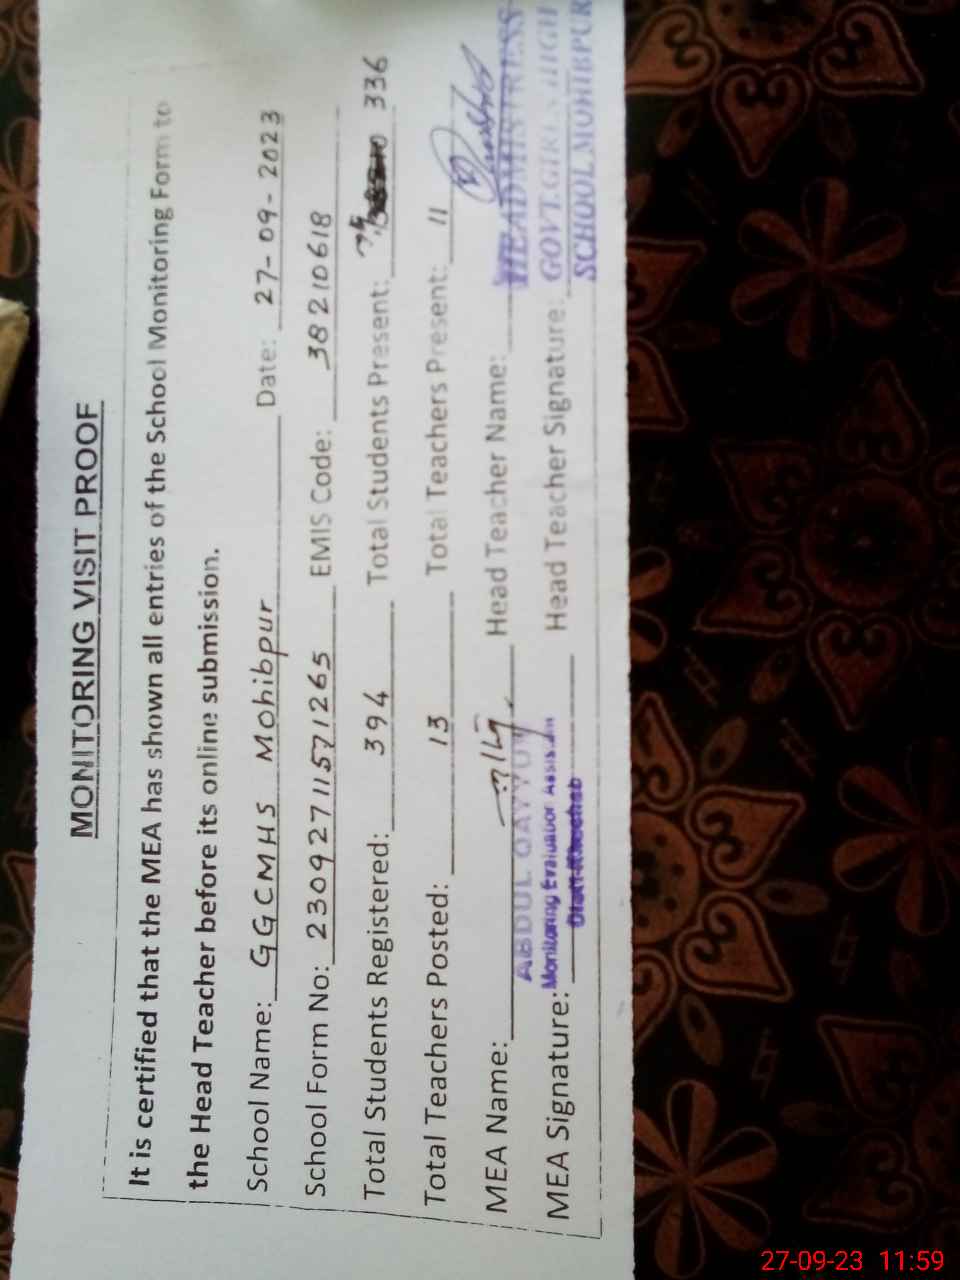 MONITORING VISIT PROOF
It is certified that the MEA has shown all entries of the School Monitoring Form to
the Head Teacher before its online submission.
School Name: GGCMHS Mohibpur Date: 27-09-2023
School Form No: 230927115571265 EMIS Code: 38210618
Total Students Registered: 394 Total Students Present: 336
Total Teachers Posted: 13 Total Teachers Present: 11
MEA Name: Head Teacher Name:
ABDUL QAYYUM HEADMISTRESS
Monitoring Evaluation Assistant
MEA Signature: Head Teacher Signature: GOVT.GIRLS HIGH
SCHOOL MOHIBPUR
27-09-23 11:59